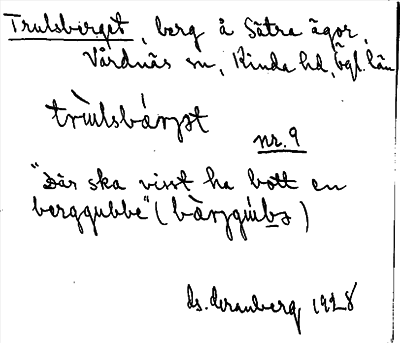 Trulsberget, berg å Sätra ägor,
Vårdnäs sn, Kinda hd, Ögl. län
trùlsbárjət
nr. 9
"Där ska visst ha bott en
berggubbe" (bàrjgúbə)
ds. Cranberg 1928